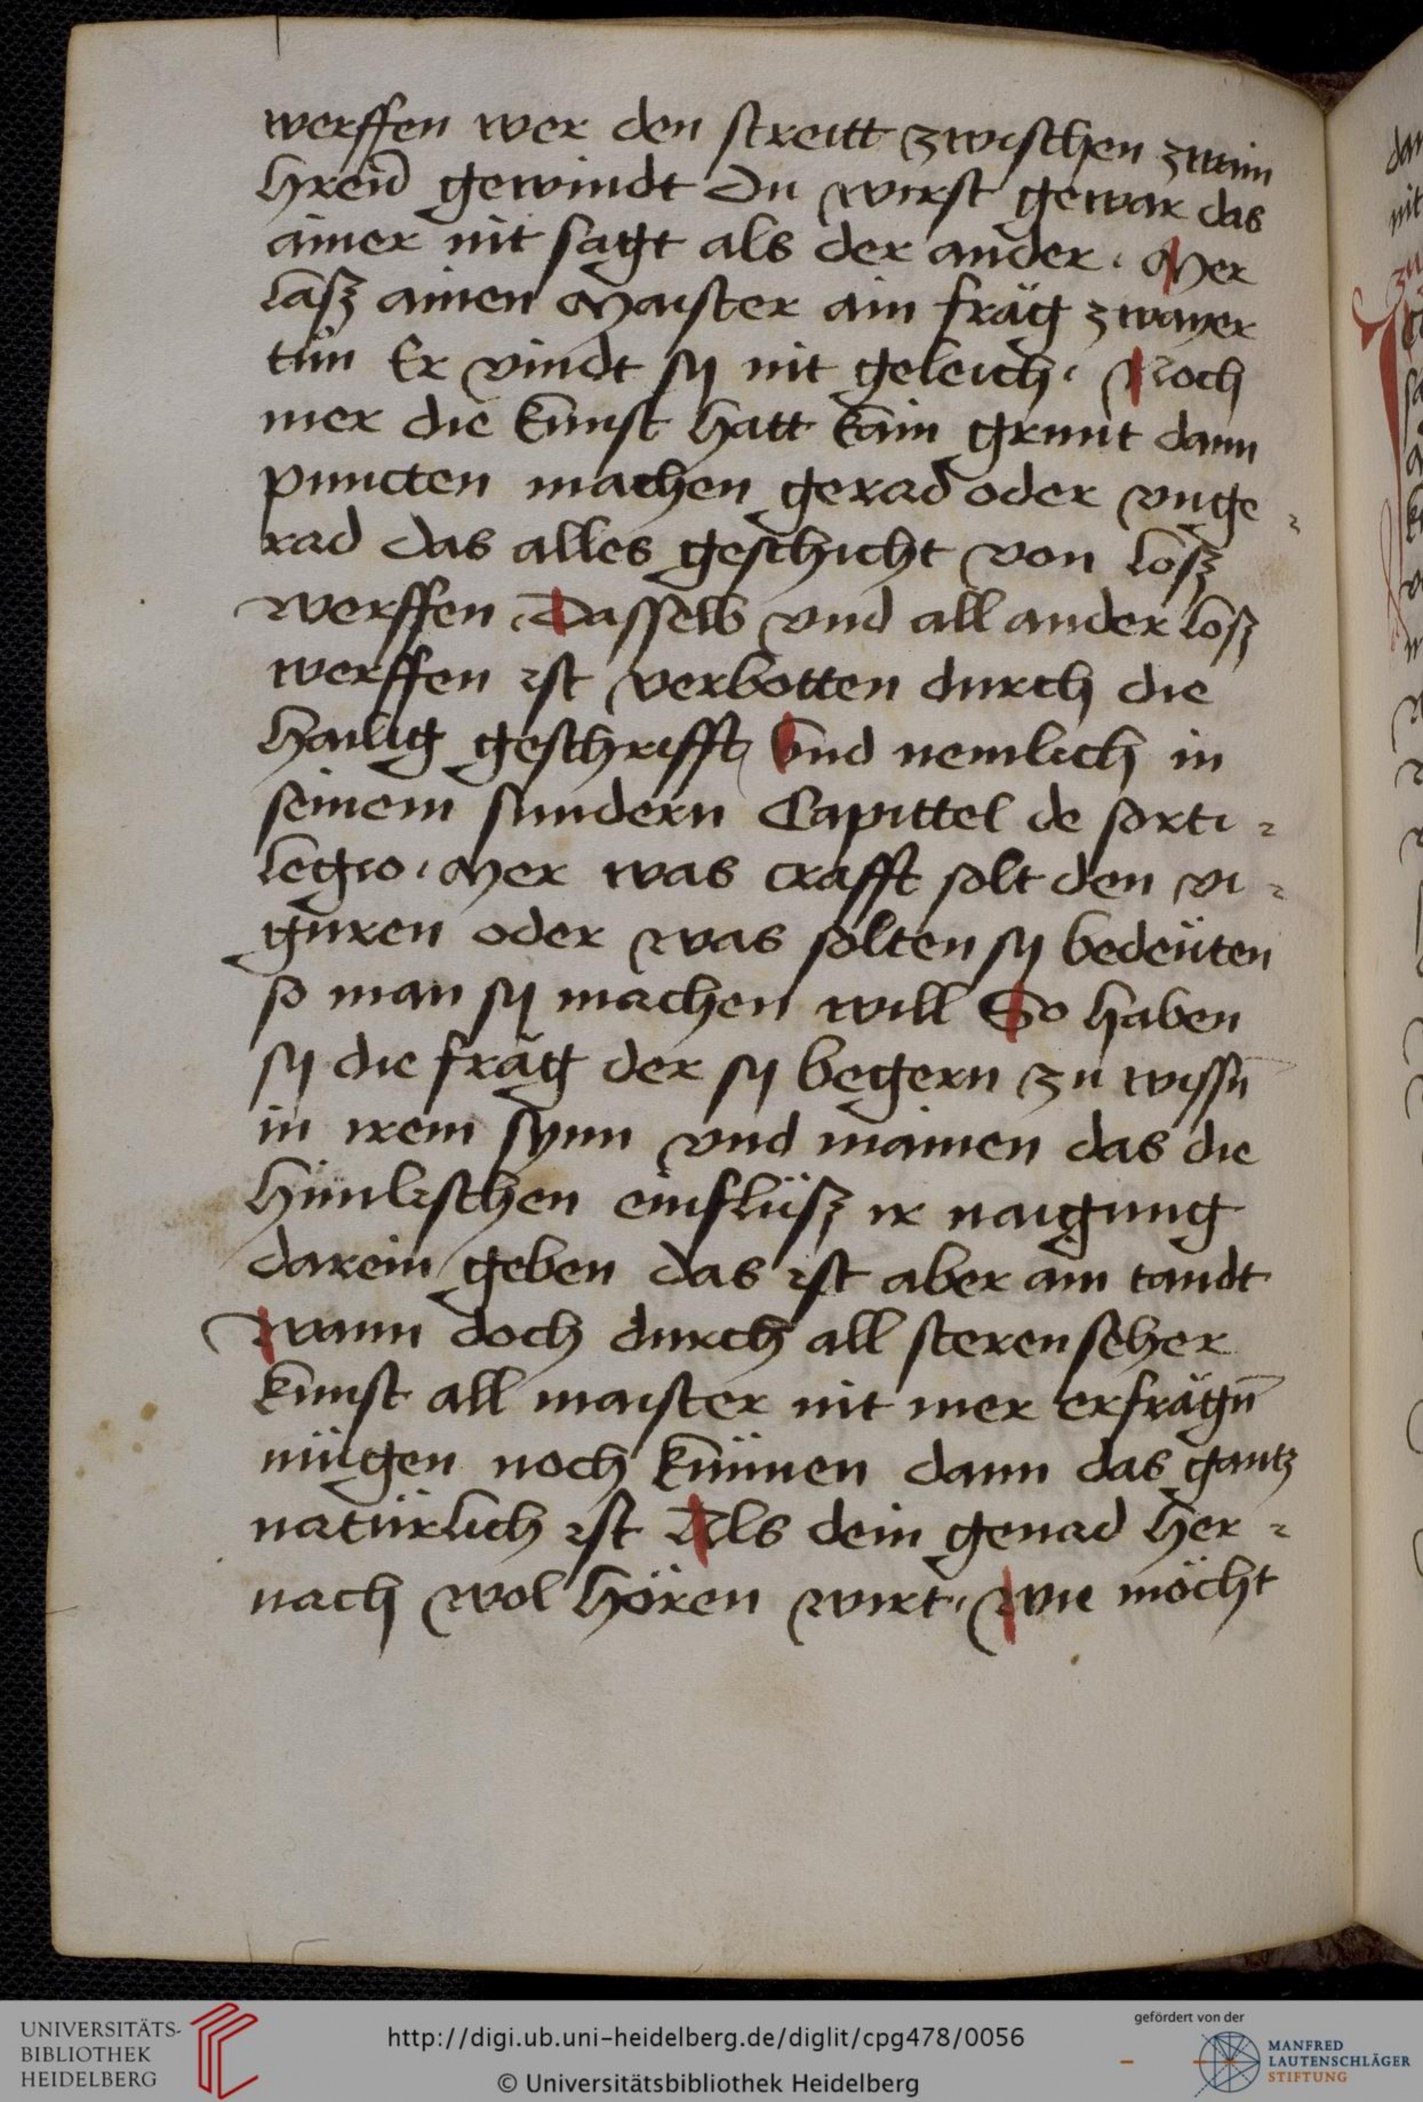 werffen wer den streitt zwischen zwain
hren̄ gewindt Du wirst gewar das
ainer nit sagt als der ander · Mer
lasz ainen Maister ain fräg zwayer
tün Er vindt sy nit geleich · Noch
mer die kunst hatt kain grunt dann
puncten machen gerad oder vnge=
rad das alles geschicht von losz
werffen · Dasselb vnd all ander losz
werffen ist verbotten durch die
hailig geschrifft Vnd nemlich in
seinem sundern Capittel de sorti=
legio · Mer was crafft solt den vi=
guren oder was solten sy bedeüten
so man sy machen will So haben
sy die fräg der sy begern zu wissn̄
in irem synn vnd mainen das die
himlischen einflüsz ir naigung
darein geben das ist aber ain tandt
Wann doch durch all sterenseher
kunst all maister nit mer erfrägn̄
mügen noch künnen dann das gantz
natürlich ist Als dein genad her=
nach wol hören wirt · Wie möcht
UNIVERSITÄTS-
BIBLIOTHEK
HEIDELBERG
http://digi.ub.uni-heidelberg.de/diglit/cpg478/0056
© Universitätsbibliothek Heidelberg
gefördert von der
MANFRED
LAUTENSCHLÄGER
STIFTUNG